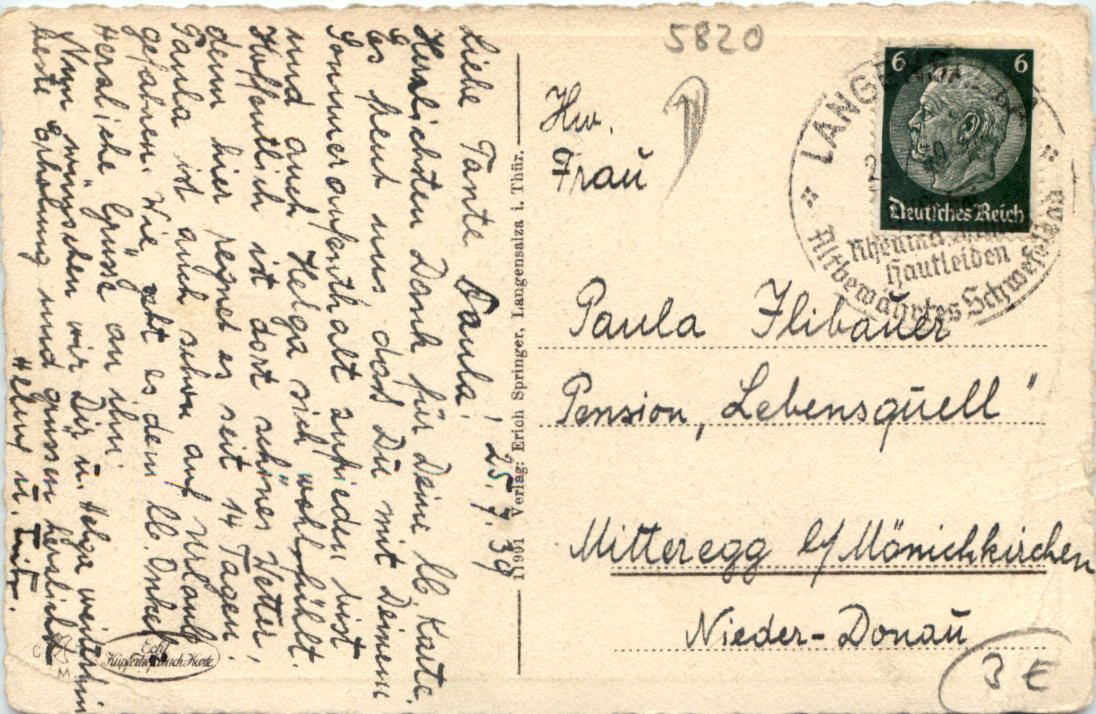 Liebe Tante Paula! 25.7.39
Herzlichsten Dank für Deine lb. Karte.
Es freut uns daß Du mit Deinem
Sommeraufenthalt zufrieden bist
und auch Helga sich wohl fühlt.
Hoffentlich ist dort schönes Wetter,
denn hier regnet es seit 14 Tagen.
Paula ist auch schon auf Urlaub
gefahren. Wie geht es dem lb. Onkel
Herzliche Grüsse an ihn.
Nun wünschen wir Dir u. Helga weiterhin
beste Erholung und grüssen herzlichst
u.
11991 Verlag: Erich Springer, Langensalza i. Thür.
Echt
Kupfertiefdruck-Karte
C
M
5820
6 6
Deutsches Reich
Rheuma
Hautleiden
Altbewährtes Schwefelbad
Hw.
Frau
Paula Ilibauer
Pension „Lebensquell"
Mitteregg b/ Mönichkirchen
Nieder-Donau
3 €